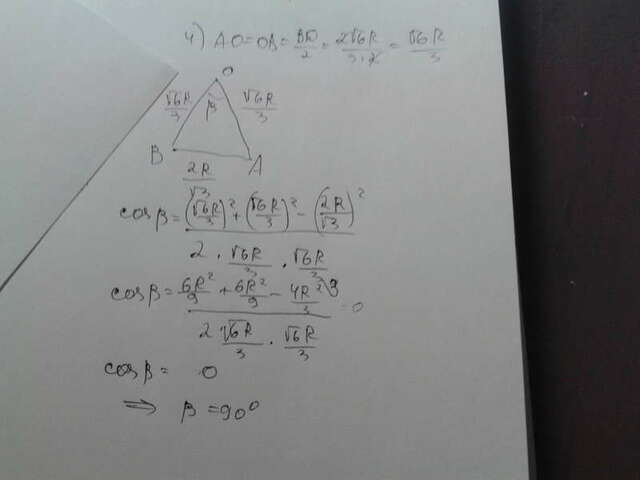 4) AO=OB=BD/2=2√6R/3·2=√6R/3
O
√6R/3 β √6R/3
B A
2R/√3
cosβ=((√6R/3)²+(√6R/3)²-(2R/√3)²)/(2·√6R/3·√6R/3)
cosβ=(6R²/9+6R²/9-4R²/3)/(2√6R/3·√6R/3)=0
cosβ= 0
⇒ β=90°